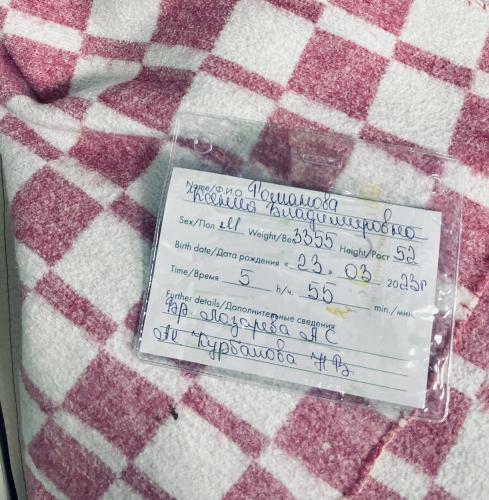 Name/Ф.И.О. Романова
Ксения Владимировна
Sex/Пол М Weight/Вес 3355 Height/Рост 52
Birth date/Дата рождения 23. 03 2023г
Time/Время 5 h/ч. 55 min./мин.
Further details/Дополнительные сведения
Вр Лазарева А С
Ак Курбанова Н В